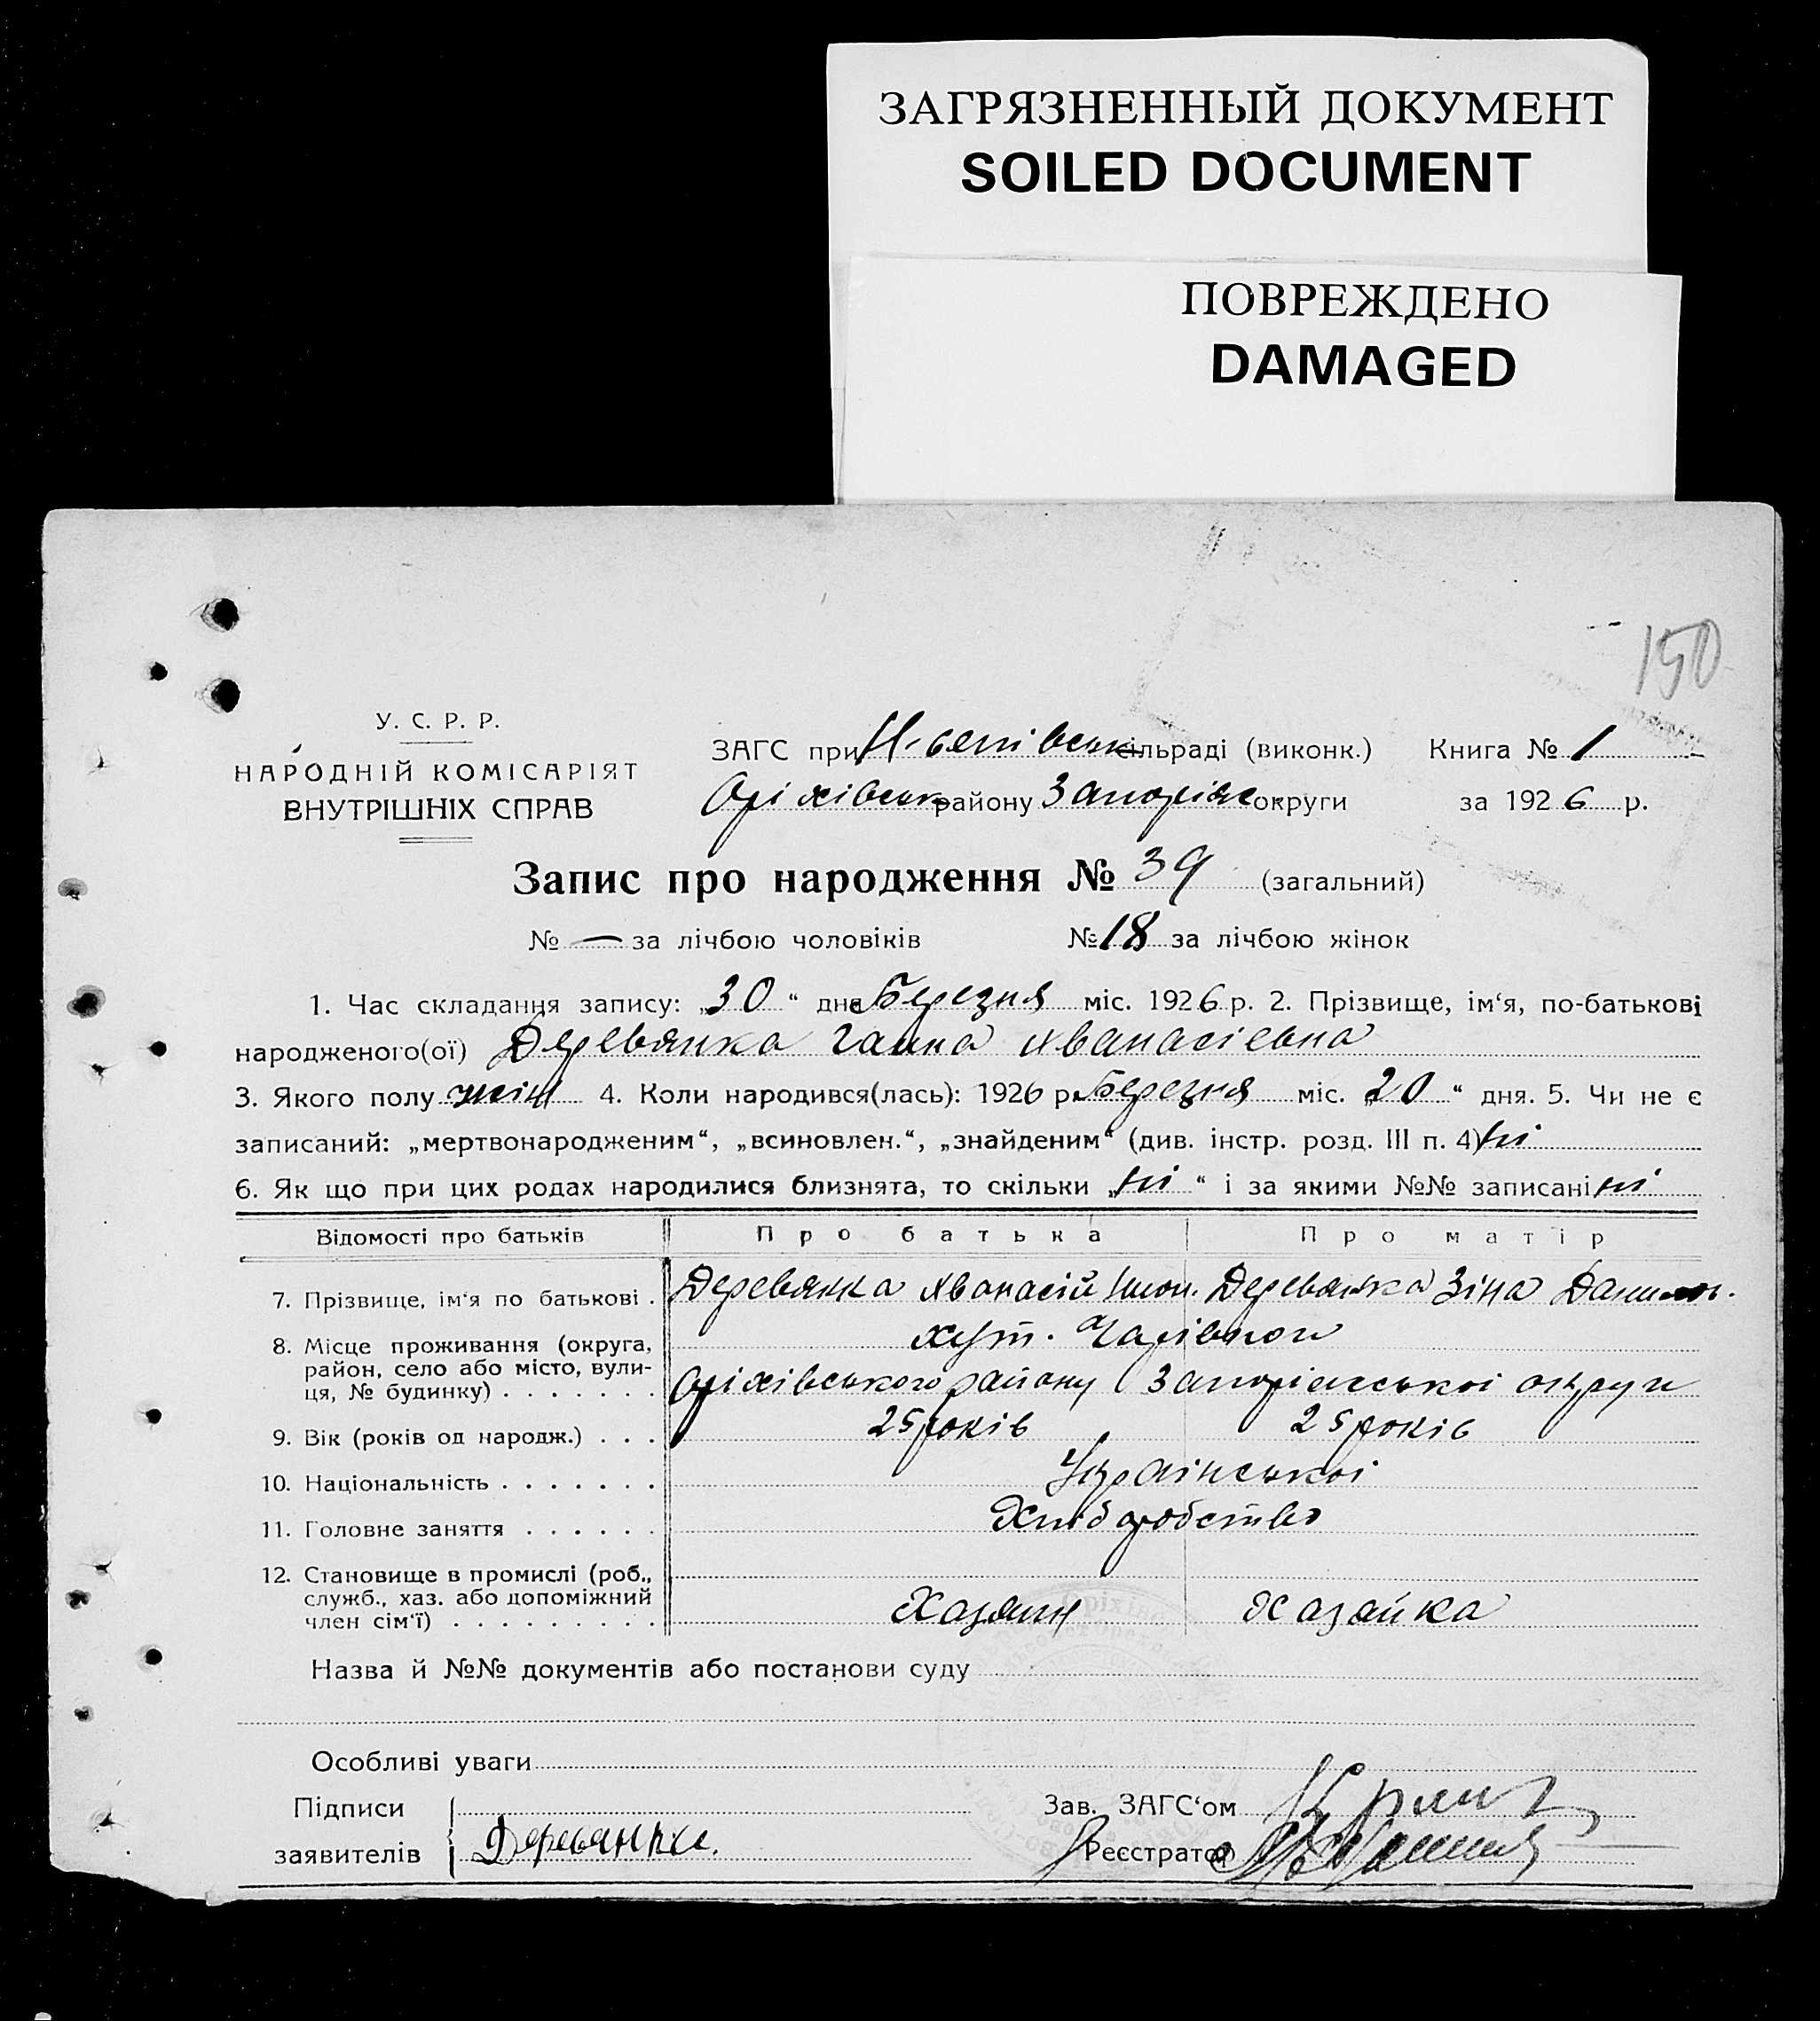 ЗАГРЯЗНЕННЫЙ ДОКУМЕНТ
SOILED DOCUMENT
ПОВРЕЖДЕНО
DAMAGED
150
У. С. Р. Р.
НАРОДНІЙ КОМІСАРІЯТ
ВНУТРІШНІХ СПРАВ
ЗАГС при сільраді (виконк.) Книга № 1
Оріхівськ району Запоріж округи за 1926 р.
Запис про народження № 39 (загальний)
№ — за лічбою чоловіків № 18 за лічбою жінок
1. Час складання запису: „30“ дня Березня міс. 1926 р. 2. Прізвище, ім‘я, по-батькові
народженого(ої) Деревянка Ганна Аванасіевна
3. Якого полу жін 4. Коли народився(лась): 1926 р. Березня міс. „20“ дня. 5. Чи не є
записаний: „мертвонародженим“, „всиновлен.“, „знайденим“ (див. інстр. розд. III п. 4) ні
6. Як що при цих родах народилися близнята, то скільки „ні“ і за якими №№ записані ні
Відомості про батьків Про батька Про матір
7. Прізвище, ім‘я по батькові . Деревянка Аванасій Деревянка Зіна Данилов.
8. Місце проживання (округа, район, село або місто, вулиця, № будинку) . . . . . . . хут. Чарівного
Оріхівського району Запоріжської округи
9. Вік (років од народж.) . . . 25 років 25 років
10. Національність . . . . . . . Украінськоі
11. Головне заняття . . . . . . Хліборобство
12. Становище в промислі (роб., служб., хаз. або допоміжний член сім‘ї) . . . . . . . . . Хазяин Хазяйка
Назва й №№ документів або постанови суду
Особливі уваги
Підписи
заявителів Деревянка.
Зав. ЗАГС‘ом
Реєстратор